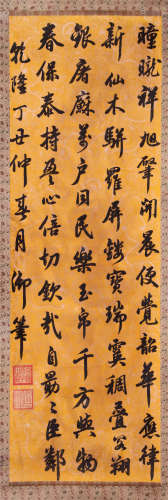 曈曨祥旭肇開晨便覺韶華應律
新仙木駢羅屏鏤寶瑞蓂稠疊翔
銀屠萬户同民樂玉帛千方與物
春保泰持盈心倍切欽哉自勗〻臣鄰
乾隆丁丑仲春月御筆